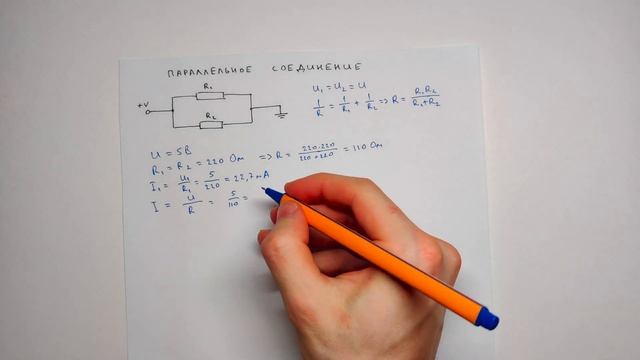 ПАРАЛЛЕЛЬНОЕ СОЕДИНЕНИЕ
R₁
+V
R₂
U₁ = U₂ = U
1/R = 1/R₁ + 1/R₂ => R = R₁R₂/R₁+R₂
U = 5В
R₁ = R₂ = 220 Ом => R = 220·220/220+220 = 110 Ом
I₁ = U₁/R₁ = 5/220 = 22,7 мА
I = U/R = 5/110 =